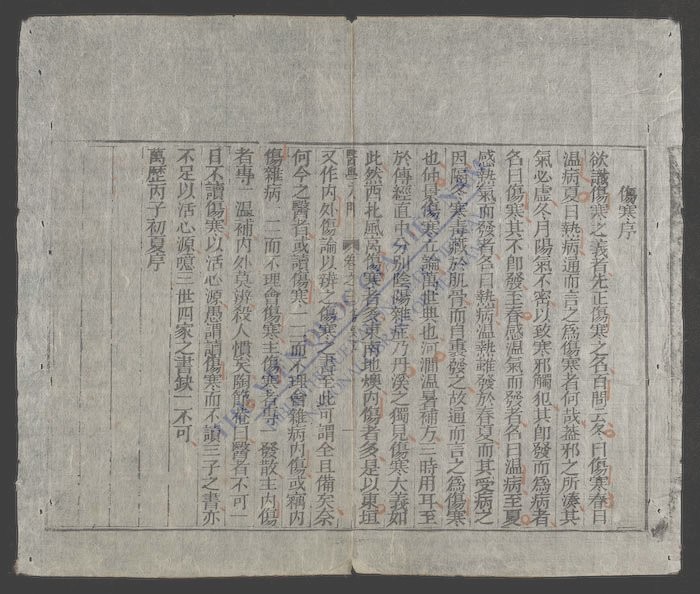 傷寒序
欲識傷寒之義者先正傷寒之名百問云冬曰傷寒春曰
温病夏曰熱病通而言之爲傷寒者何哉蓋邪之所湊其
氣必虛冬月陽氣不密以致寒邪觸犯其即發而爲病者
名曰傷寒其不卽發至春感温氣而發者名曰温病至夏
感熱氣而發者名曰熱病温熱雖發於春夏而其受病之
因隔冬寒毒藏於肌骨而自裏發之故通而言之爲傷寒
也仲景傷寒立論萬世典也河澗温暑補方三時用耳至
於傳經直中分別陰陽雜症乃丹溪之獨見傷寒大義如
此然西北風高傷寒者多東南地燠内傷者多是以東垣
醫學入門
又作内外傷論以辨之傷寒之書至此可謂全且備矣奈
何今之醫者或讀傷寒一二而不理會雜病内傷或竊内
傷雜病一二而不理會傷寒主傷寒者專一發散主内傷
者專一温補内外莫辨殺人慣矣陶節菴曰醫者不可一
日不讀傷寒以活心源愚謂讀傷寒而不讀三子之書亦
不足以活心源噫三世四家之書缺一不可
萬歷丙子初夏序